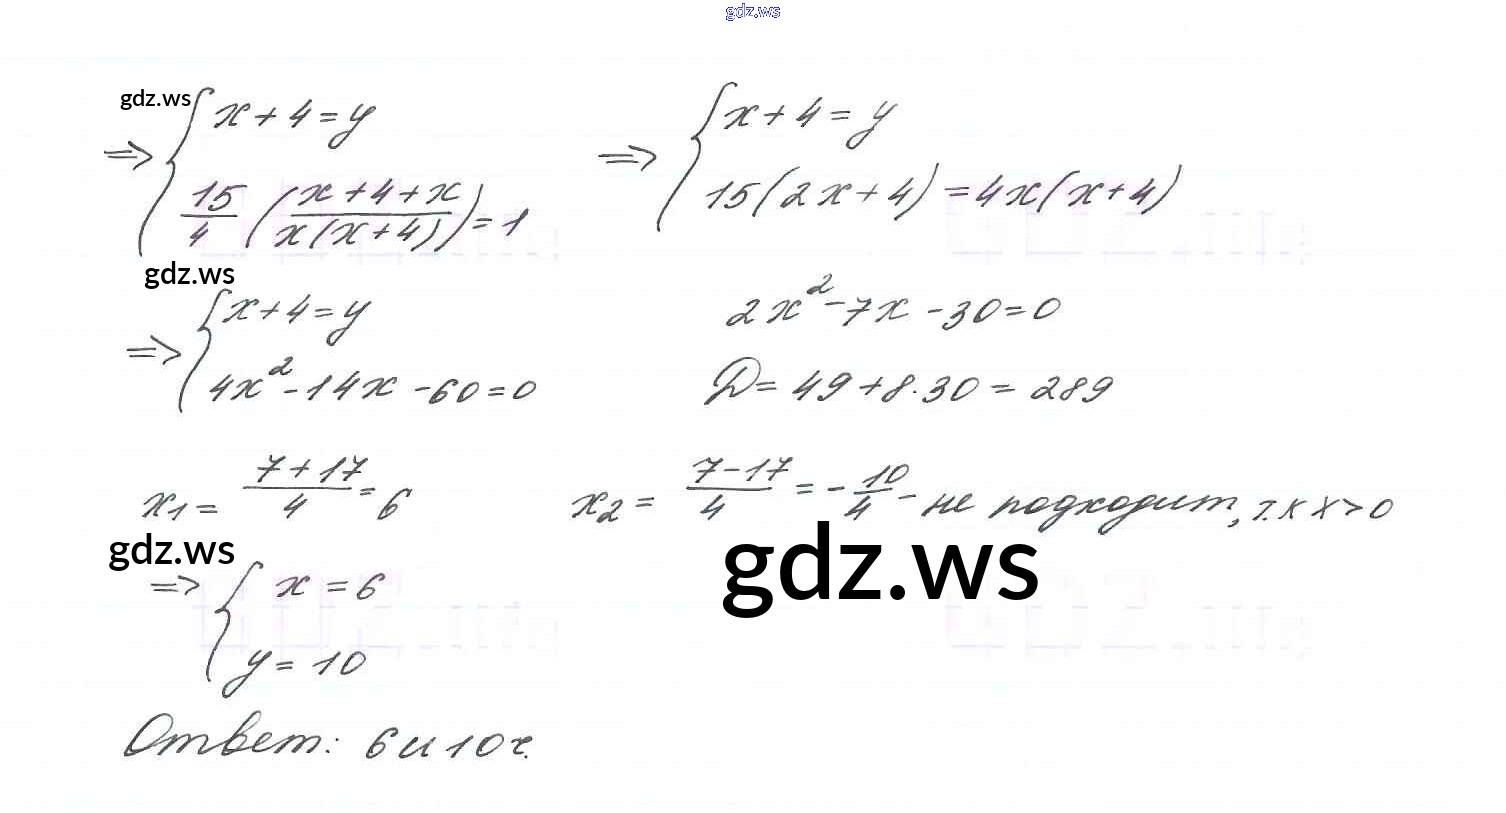 gdz.ws
gdz.ws
=> { x + 4 = y => { x + 4 = y
15/4 ( (x + 4 + x)/(x(x + 4)) ) = 1 15(2x + 4) = 4x(x + 4)
gdz.ws
=> { x + 4 = y 2x² - 7x - 30 = 0
4x² - 14x - 60 = 0 D = 49 + 8 · 30 = 289
x₁ = (7 + 17)/4 = 6 x₂ = (7 - 17)/4 = - 10/4 - не подходит, т.к x > 0
gdz.ws
gdz.ws
=> { x = 6
y = 10
Ответ: 6 и 10 ч.